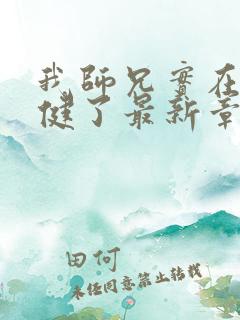 我師兄實在
健了最新章
田何
未经同意禁止转载